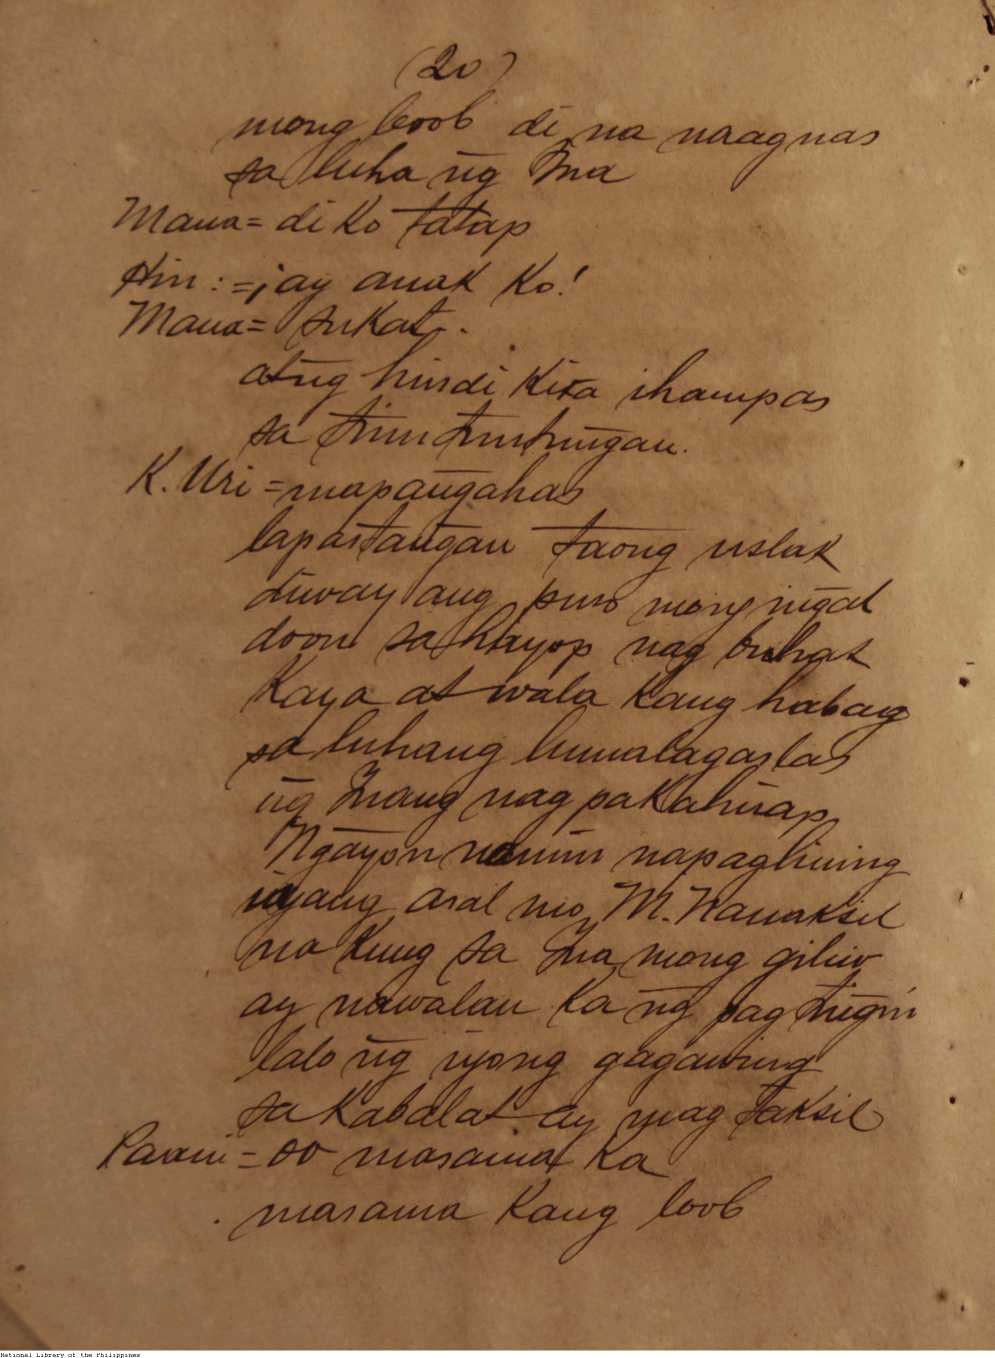 (20)
mong loob di na naagnas
sa luha ng̃ Ina
Mana= di ko tatap
Hin:=¡ay anak ko!
Mana= sukat.
at ng̃ hindi kita ihampas
sa
K. Uri =mapang̃ahas
lapastang̃an taong uslak
ang puso mong
doon sa hayop nag buhat
kaya at wala kang habag
sa luhang lumalagaslas
ng̃ Inang nagpakahirap
Ng̃ayon namin napaglining
iyang aral mo, M. Nanaksil
na kung sa Ina mong giliw
ay nawalan ka ng̃ pag ting̃in
lalo ng̃ iyong gagawing
sa kabalat ay mag taksil
= oo masama ka
masama kang loob
National Library of the Philippines